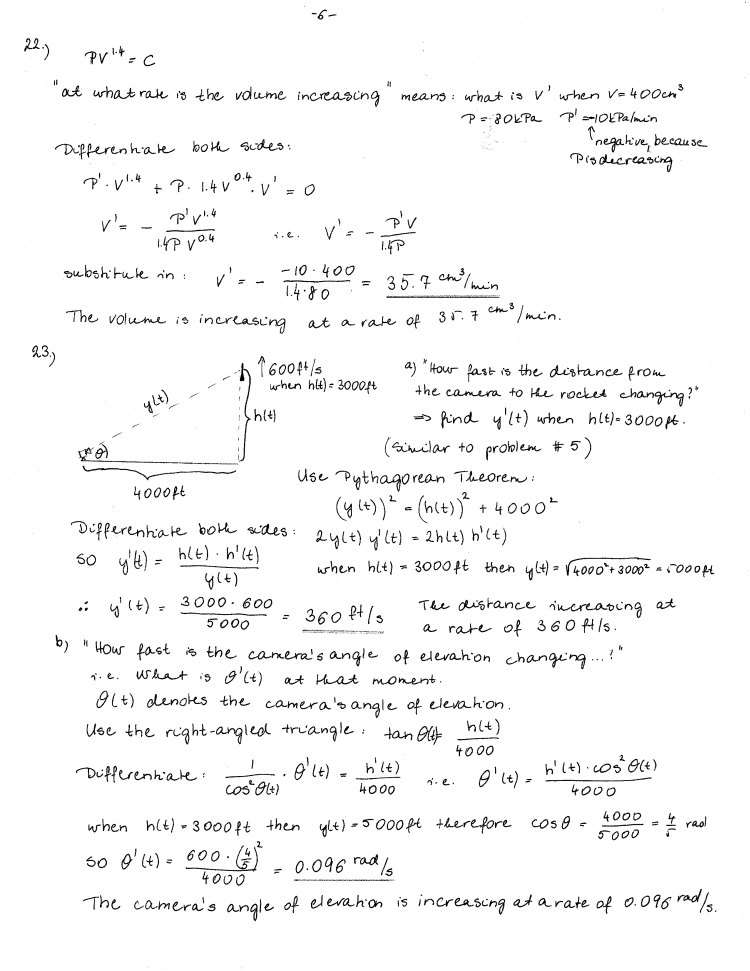 -6-
22.) PV^1.4 = C
"at what rate is the volume increasing" means: what is V' when V = 400cm³
P = 80kPa P' = -10kPa/min
negative, because
P is decreasing
Differentiate both sides:
P' · V^1.4 + P · 1.4 V^0.4 · V' = 0
V' = - P' V^1.4 / 1.4P V^0.4 i.e. V' = - P'V / 1.4P
substitute in: V' = - -10 · 400 / 1.4 · 80 = 35.7 cm³/min
The volume is increasing at a rate of 35.7 cm³/min.
23.)
↑600ft/s
when h(t) = 3000ft
y(t)
h(t)
θ
4000ft
a) "How fast is the distance from
the camera to the rocket changing?"
⇒ find y'(t) when h(t) = 3000ft.
(similar to problem # 5)
Use Pythagorean Theorem:
(y(t))² = (h(t))² + 4000²
Differentiate both sides: 2y(t) y'(t) = 2h(t) h'(t)
so y'(t) = h(t) · h'(t) / y(t) when h(t) = 3000ft then y(t) = √4000² + 3000² = 5000ft
∴ y'(t) = 3000 · 600 / 5000 = 360 ft/s The distance increasing at
a rate of 360 ft/s.
b) "How fast is the camera's angle of elevation changing...?"
i.e. What is θ'(t) at that moment.
θ(t) denotes the camera's angle of elevation.
Use the right-angled triangle: tan θ(t) = h(t) / 4000
Differentiate: 1 / cos²θ(t) · θ'(t) = h'(t) / 4000 i.e. θ'(t) = h'(t) · cos²θ(t) / 4000
when h(t) = 3000ft then y(t) = 5000ft therefore cos θ = 4000 / 5000 = 4/5 rad
so θ'(t) = 600 · (4/5)² / 4000 = 0.096 rad/s
The camera's angle of elevation is increasing at a rate of 0.096 rad/s.